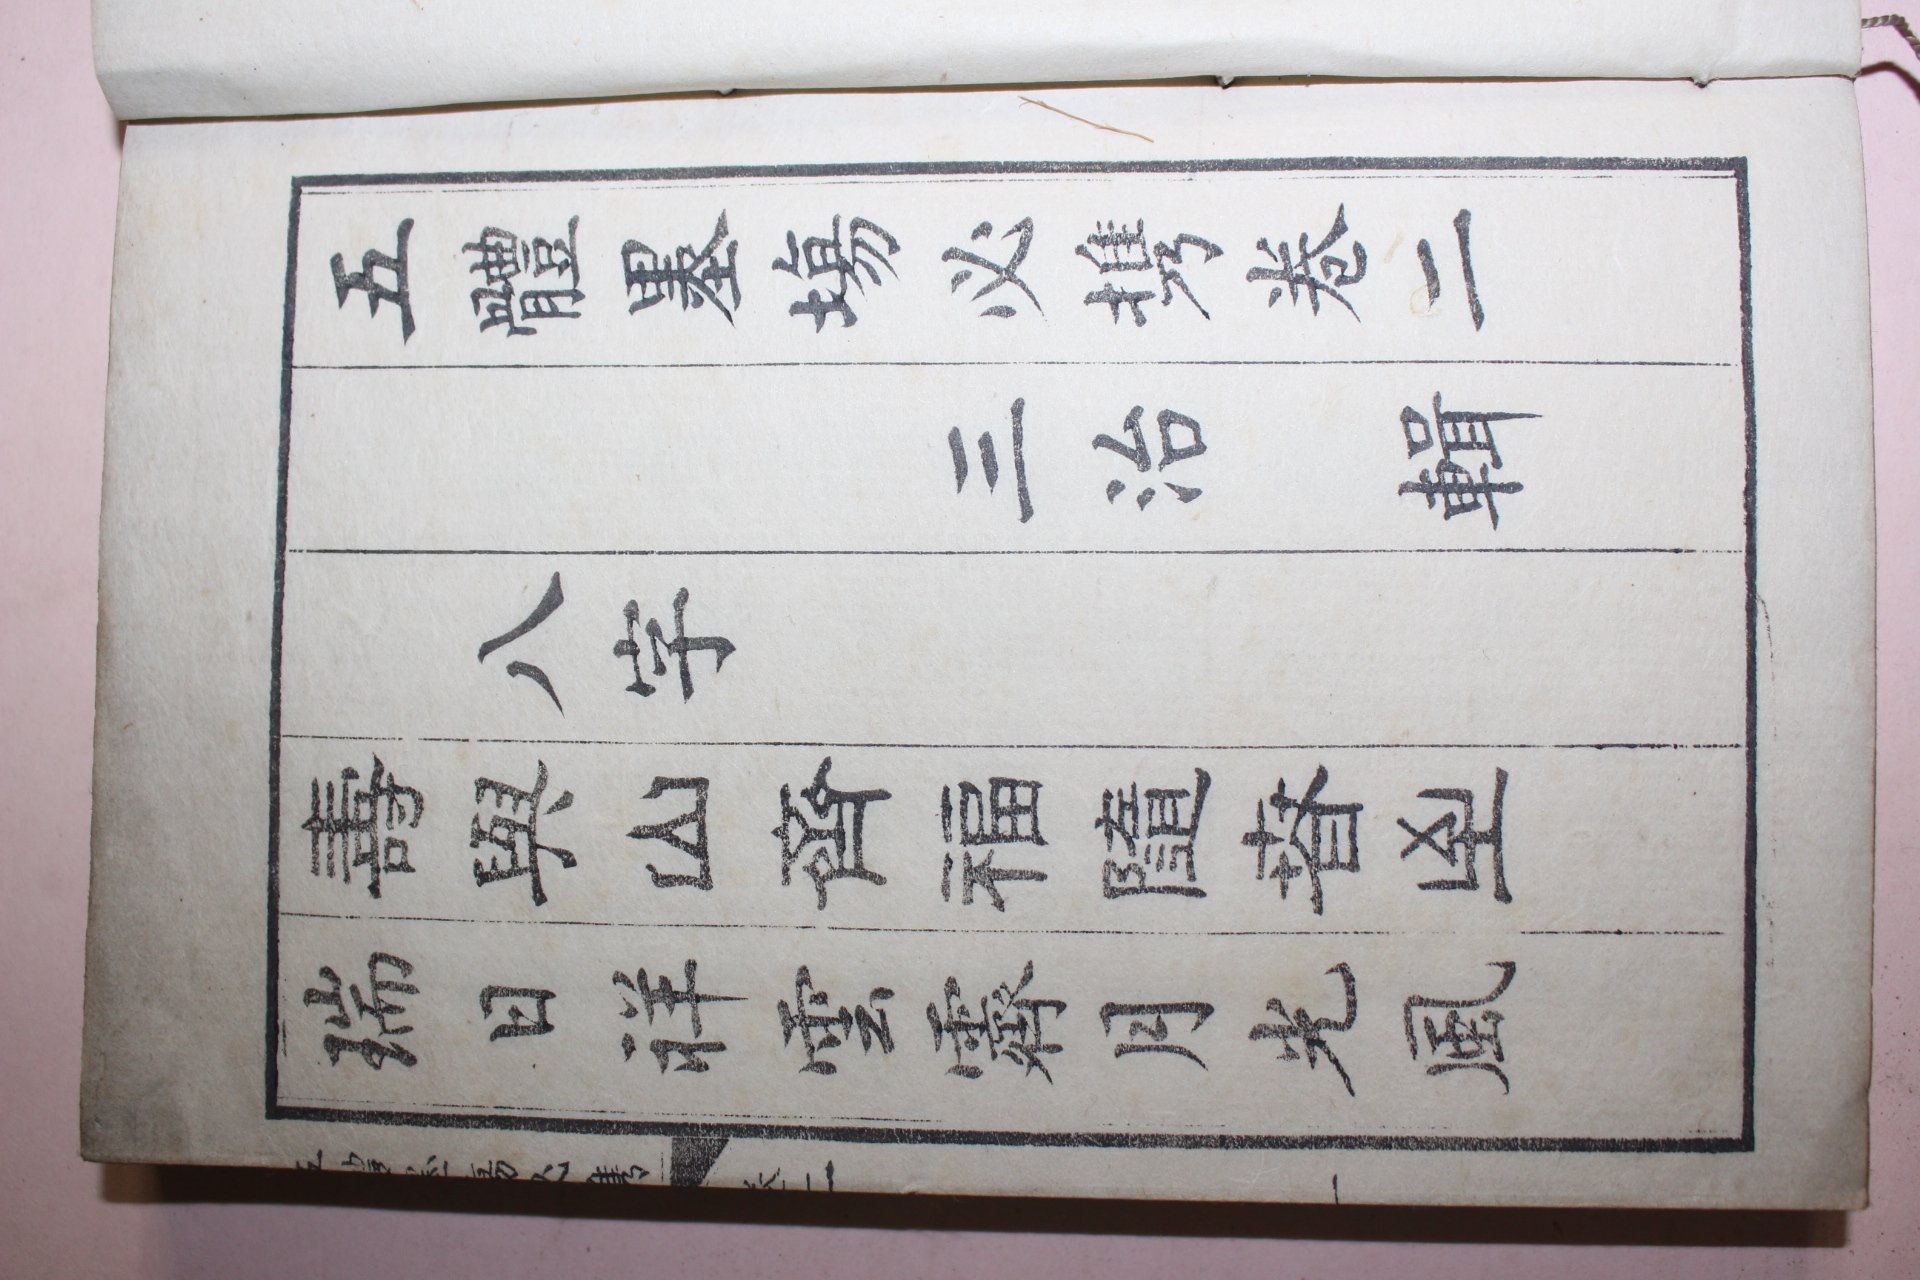 五體墨場必攜卷二
三治 輯
八字
壽與山齊福隨春至
瑞日祥雲霽月光風
卷二